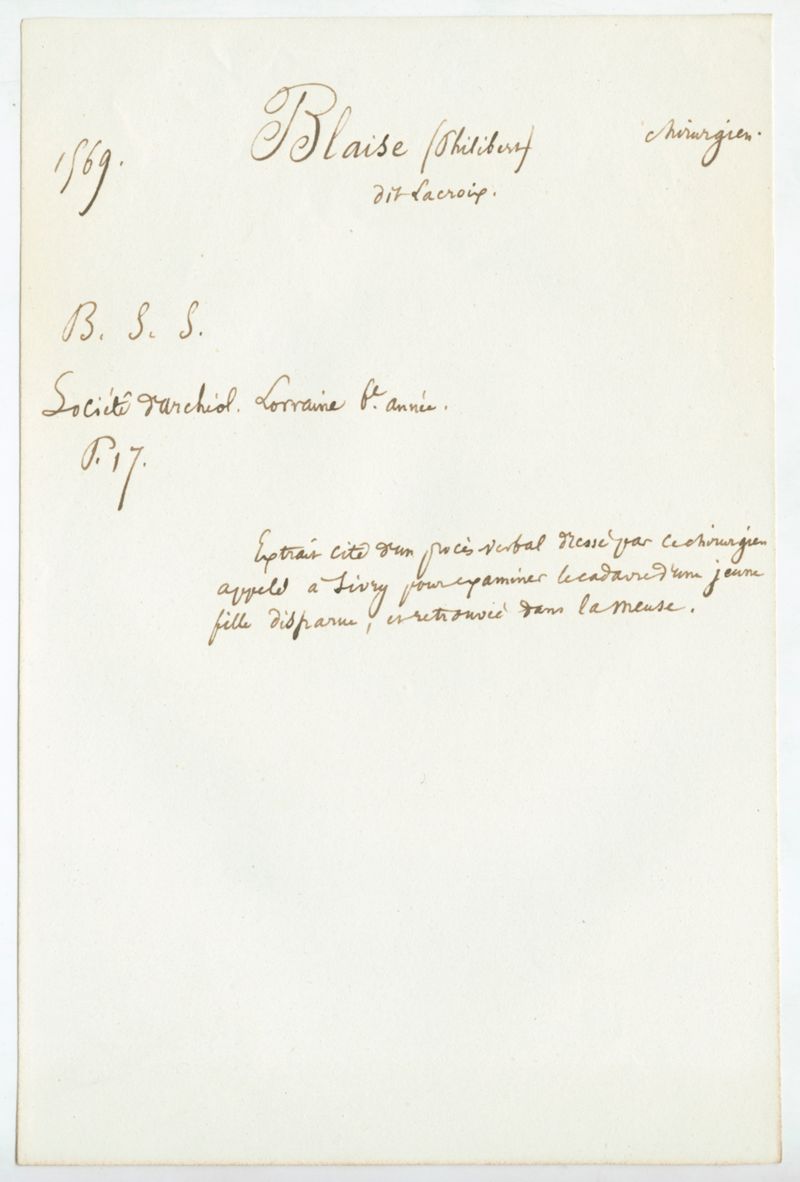 1569.
Blaise (Philibert)
chirurgien.
dit Lacroix.
B. S. S.
Société d'archéol. Lorraine 6e. année.
P. 17.
Extrait cité d'un procès verbal dressé par ce chirurgien
appelé à Sivry pour examiner le cadavre d'une jeune
fille disparue, et retrouvée dans la Meuse.